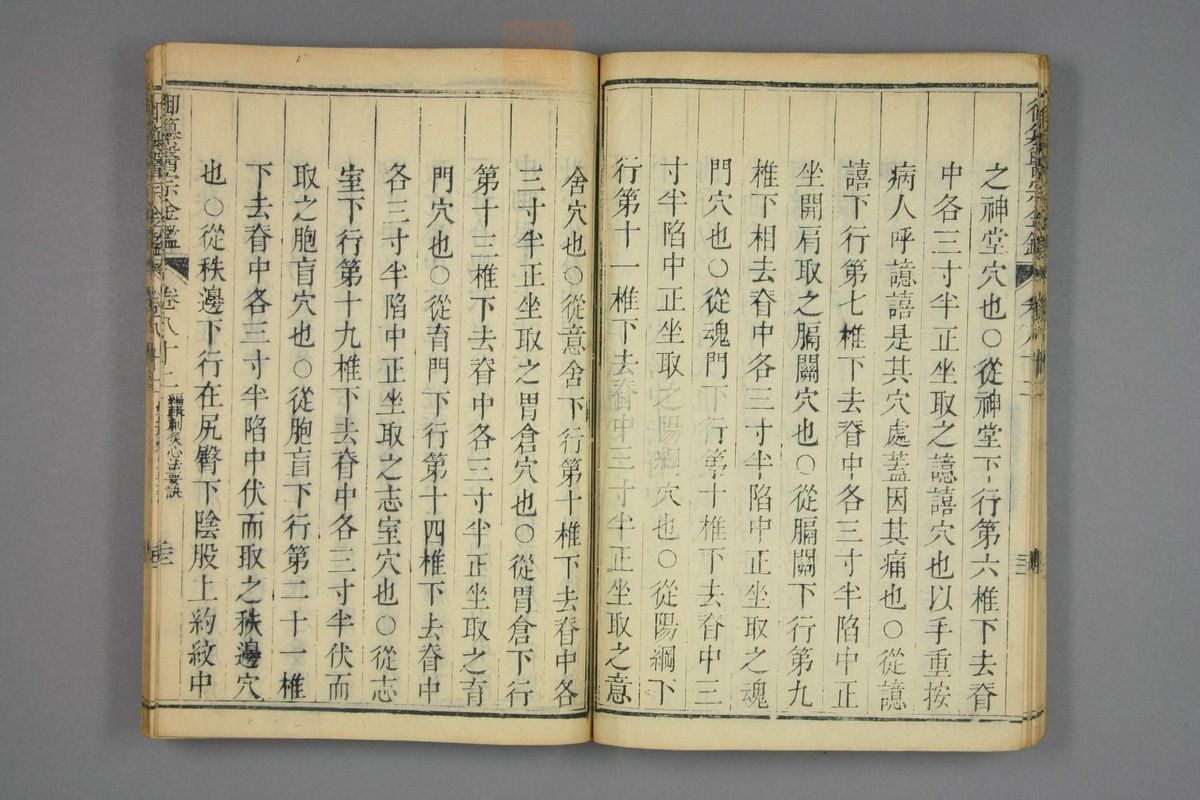 之神堂穴也○從神堂下行第六椎下去脊
中各三寸半正坐取之譩譆穴也以手重按
病人呼譩譆是其穴處蓋因其痛也○從譩
譆下行第七椎下去脊中各三寸半陷中正
坐開肩取之膈關穴也○從膈關下行第九
椎下相去脊中各三寸半陷中正坐取之魂
門穴也○從魂門下行第十椎下去脊中三
寸半陷中正坐取之陽綱穴也○從陽綱下
行第十一椎下去脊中三寸半正坐取之意
舍穴也○從意舍下行第十椎下去脊中各
三寸半正坐取之胃倉穴也○從胃倉下行
第十三椎下去脊中各三寸半正坐取之肓
門穴也○從肓門下行第十四椎下去脊中
各三寸半陷中正坐取之志室穴也○從志
室下行第十九椎下去脊中各三寸半伏而
取之胞肓穴也○從胞肓下行第二十一椎
下去脊中各三寸半陷中伏而取之秩邊穴
也○從秩邊下行在尻臀下陰股上約紋中
御纂醫宗金鑑 卷八十二 編輯刺灸心法要訣